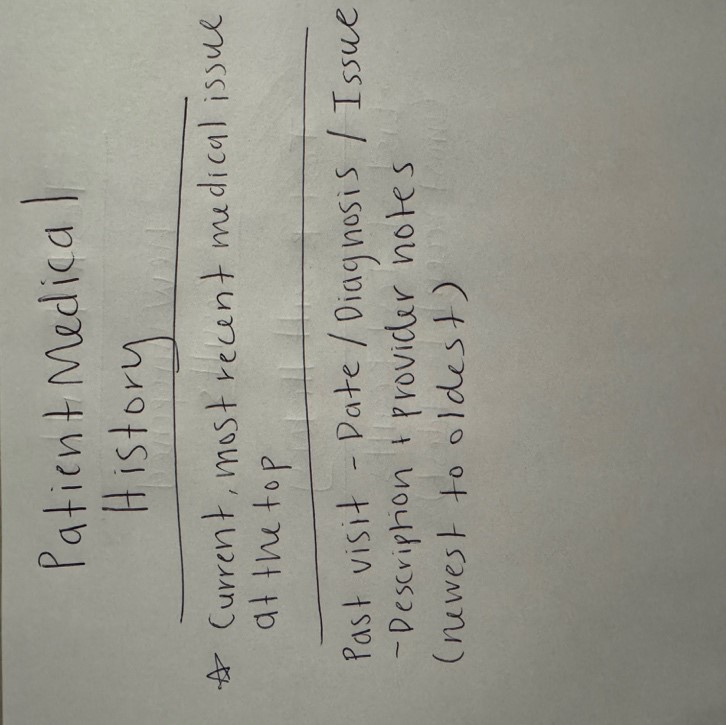 Patient Medical
History
☆ Current, most recent medical issue
at the top
Past visit - Date / Diagnosis / Issue
- Description + provider notes
(newest to oldest)